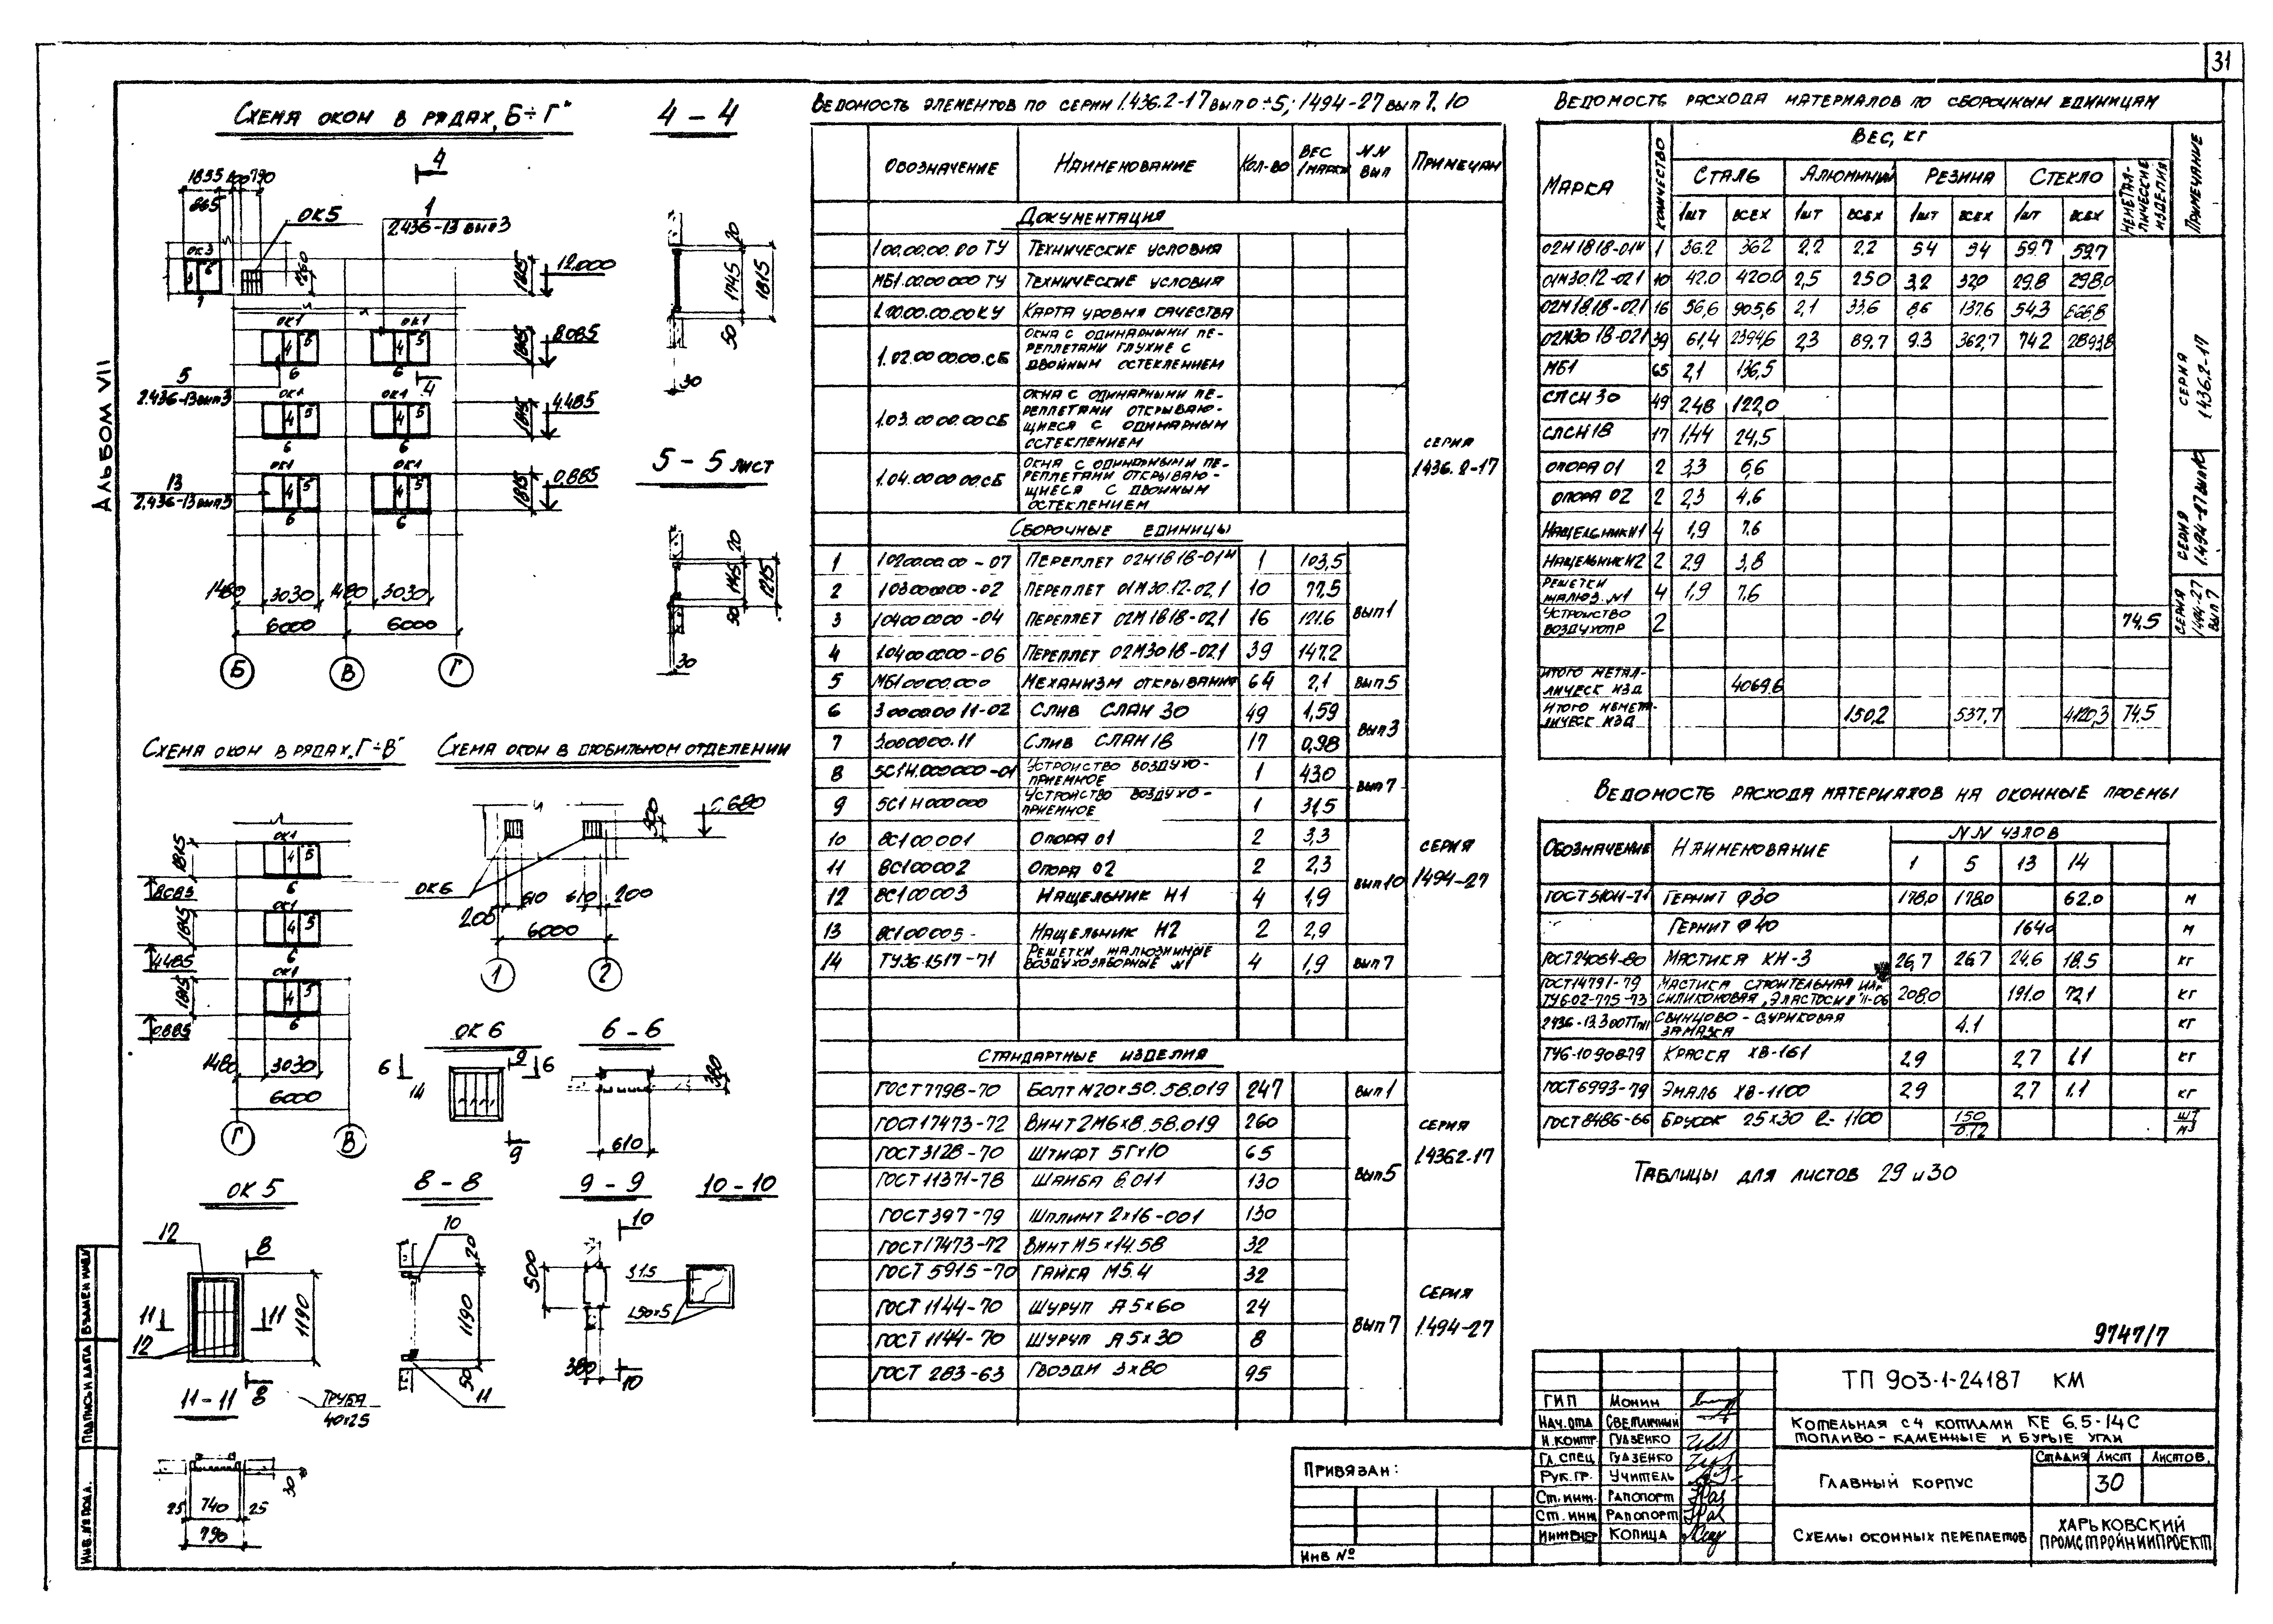 31
АЛЬБОМ VII
СХЕМА ОКОН В РЯДАХ „Б÷Г"
4 – 4
4
1855
400
790
865
ОК5
1
2.436-13 ВЫП 3
ОК3
1260
1815
12.000
ОК1
ОК1
1815
8.085
4
5
4
5
6
6
5
2.436-13 ВЫП 3
4
ОК1
ОК1
1815
4.485
4
5
4
5
6
6
ОК1
ОК1
13
2.436-13 ВЫП 3
1815
0.885
4
5
4
5
6
6
1480
3030
1480
3030
6000
6000
Б
В
Г
20
1745
1815
50
30
5 – 5 ЛИСТ
20
1145
1215
50
30
СХЕМА ОКОН В РЯДАХ „Г÷В"
ОК1
1815
4
5
6
8.085
ОК1
1815
4
5
6
4.485
ОК1
1815
4
5
6
0.885
1480
3030
6000
Г
В
СХЕМА ОКОН В ДРОБИЛЬНОМ ОТДЕЛЕНИИ
500
ОК6
205
610
610
200
6000
1
2
ОК 6
6 – 6
6
9
6
14
9
380
610
ОК 5
8 – 8
9 – 9
10 – 10
12
8
11
11
12
1190
8
10
20
1190
50
11
10
500
380
10
L50×5
11 – 11
ТРУБА
40×25
25
740
25
790
30
ВЕДОМОСТЬ ЭЛЕМЕНТОВ ПО СЕРИИ 1.436.2-17 ВЫП 0÷5; 1494-27 ВЫП 7, 10
ОБОЗНАЧЕНИЕ НАИМЕНОВАНИЕ КОЛ-ВО ВЕС 1МАРКИ NN ВЫП ПРИМЕЧАН
ДОКУМЕНТАЦИЯ
1.00.00.00.00 ТУ ТЕХНИЧЕСКИЕ УСЛОВИЯ
МБ1.00.00 000 ТУ ТЕХНИЧЕСКИЕ УСЛОВИЯ
1.00.00.00.00 КУ КАРТА УРОВНЯ КАЧЕСТВА
1.02.00 00.00. СБ ОКНА С ОДИНАРНЫМИ ПЕ-
РЕПЛЕТАМИ ГЛУХИЕ С
ДВОЙНЫМ ОСТЕКЛЕНИЕМ
1.03.00 00.00 СБ ОКНА С ОДИНАРНЫМИ ПЕ-
РЕПЛЕТАМИ ОТКРЫВАЮ-
ЩИЕСЯ С ОДИНАРНЫМ
ОСТЕКЛЕНИЕМ
1.04.00 00 00. СБ ОКНА С ОДИНАРНЫМИ ПЕ-
РЕПЛЕТАМИ ОТКРЫВАЮ-
ЩИЕСЯ С ДВОЙНЫМ
ОСТЕКЛЕНИЕМ
СЕРИЯ
1.436.2-17
СБОРОЧНЫЕ ЕДИНИЦЫ
1 10200.00.00 – 07 ПЕРЕПЛЕТ 02Н1818-01Н 1 103,5
2 10300.00.00 – 02 ПЕРЕПЛЕТ 01М30.12-02.1 10 77,5
3 10400 00 00 – 04 ПЕРЕПЛЕТ 02М1818-02.1 16 121.6 ВЫП1
4 10400 00.00 – 06 ПЕРЕПЛЕТ 02М3018-02.1 39 147.2
5 МБ1 00.00.000 МЕХАНИЗМ ОТКРЫВАНИЯ 64 2,1 ВЫП 5
6 3.00.00.00 11-02 СЛИВ СЛАН 30 49 1,59
7 3.00.00.00.11 СЛИВ СЛАН 18 17 0,98 ВЫП 3
8 5С1Н.000000 – 01 УСТРОЙСТВО ВОЗДУХО-
ПРИЕМНОЕ 1 43.0
9 5С1 Н 000000 УСТРОЙСТВО ВОЗДУХО-
ПРИЕМНОЕ 1 31,5 ВЫП 7
10 8С1 00 001 ОПОРА 01 2 3,3
11 8С1 00 002 ОПОРА 02 2 2,3 ВЫП 10
12 8С1 00 003 НАЩЕЛЬНИК Н1 4 1,9
13 8С1 00 005 НАЩЕЛЬНИК Н2 2 2,9
14 ТУ36-1517-71 РЕШЕТКИ ЖАЛЮЗИЙНЫЕ
ВОЗДУХОЗАБОРНЫЕ №1 4 1,9 ВЫП 7
СЕРИЯ
1.494-27
СТАНДАРТНЫЕ ИЗДЕЛИЯ
ГОСТ 7798-70 БОЛТ М20×50.58.019 247 ВЫП 1
ГОСТ 17473-72 ВИНТ 2М6×8.58.019 260
ГОСТ 3128-70 ШТИФТ 5Г×10 65
ГОСТ 11371-78 ШАЙБА 6.011 130 ВЫП 5
ГОСТ 397-79 ШПЛИНТ 2×16-001 130
СЕРИЯ
1.436.2-17
ГОСТ 17473-72 ВИНТ М5×14.58 32
ГОСТ 5915-70 ГАЙКА М5.4 32
ГОСТ 1144-70 ШУРУП А 5×60 24
ГОСТ 1144-70 ШУРУП А 5×30 8 ВЫП 7
ГОСТ 283-63 ГВОЗДИ 3×80 95
СЕРИЯ
1.494-27
ВЕДОМОСТЬ РАСХОДА МАТЕРИАЛОВ ПО СБОРОЧНЫМ ЕДИНИЦАМ
МАРКА КОЛИЧЕСТВО ВЕС, КГ НЕМЕТАЛ-
ЛИЧЕСКИЕ
ИЗДЕЛИЯ ПРИМЕЧАНИЕ
СТАЛЬ АЛЮМИНИЙ РЕЗИНА СТЕКЛО
1ШТ ВСЕХ 1ШТ ВСЕХ 1ШТ ВСЕХ 1ШТ ВСЕХ
02Н 1818-01Н 1 36.2 36.2 2,2 2.2 5.4 5.4 59.7 59.7
01М30.12-02.1 10 42.0 420.0 2,5 25.0 3,2 32.0 29.8 298,0
02М18.18-02.1 16 56,6 905,6 2,1 33,6 8,6 137.6 54,3 868,8
02М30 18-02.1 39 61,4 2394,6 2,3 89.7 9.3 362,7 74.2 2893,8
МБ1 65 2,1 136,5
СЛСН 30 49 2.48 122,0
СЛСН 18 17 1.44 24,5
ОПОРА 01 2 3,3 6,6
ОПОРА 02 2 2,3 4,6
НАЩЕЛЬНИК Н1 4 1,9 7.6
НАЩЕЛЬНИК Н2 2 2.9 3,8
РЕШЕТКИ
ЖАЛЮЗ. №1 4 1,9 7,6
УСТРОЙСТВО
ВОЗДУХОПР 2 74,5
ИТОГО МЕТАЛ-
ЛИЧЕСК ИЗД 4069,6
ИТОГО НЕМЕТАЛ-
ЛИЧЕСК ИЗД 150,2 537,7 4120,3 74,5
СЕРИЯ
1.436.2-17
СЕРИЯ
1.494-27 ВЫП 10
СЕРИЯ
1.494-27
ВЫП 7
ВЕДОМОСТЬ РАСХОДА МАТЕРИАЛОВ НА ОКОННЫЕ ПРОЕМЫ
ОБОЗНАЧЕНИЕ НАИМЕНОВАНИЕ NN УЗЛОВ
1 5 13 14
ГОСТ 51011-71 ГЕРНИТ Ф30 178,0 178,0 62.0 М
ГЕРНИТ Ф40 164,0 М
ГОСТ 24064-80 МАСТИКА КН-3 26,7 26.7 24.6 18.5 КГ
ГОСТ 14791-79 МАСТИКА СТРОИТЕЛЬНАЯ ИЛИ
ТУ6-02-775-73 СИЛИКОНОВАЯ „ЭЛАСТОСИЛ" 11-06 208.0 191.0 72,1 КГ
СВИНЦОВО-СУРИКОВАЯ
ЗАМАЗКА 4.1 КГ
КРАСКА ХВ-161 2,9 2.7 1.1 КГ
ГОСТ 6993-79 ЭМАЛЬ ХВ-1100 2,9 2,7 1.1 КГ
ГОСТ 8486-66 БРУСОК 25×30 ℓ-1100 150/0.12 ШТ/М3
ТАБЛИЦЫ ДЛЯ ЛИСТОВ 29 И 30
9747/7
ТП 903-1-24187 КМ
КОТЕЛЬНАЯ С 4 КОТЛАМИ КЕ 6,5-14С
ТОПЛИВО – КАМЕННЫЕ И БУРЫЕ УГЛИ
ГЛАВНЫЙ КОРПУС
СТАДИЯ ЛИСТ ЛИСТОВ
30
СХЕМЫ ОКОННЫХ ПЕРЕПЛЕТОВ
ХАРЬКОВСКИЙ
ПРОМСТРОЙНИИПРОЕКТ
ГИП МОНИН
НАЧ. ОТД СВЕТЛИЧНЫЙ
Н. КОНТР ГУДЗЕНКО
ГЛ. СПЕЦ ГУДЗЕНКО
РУК. ГР. УЧИТЕЛЬ
СТ. ИНЖ. РАПОПОРТ
СТ. ИНЖ РАПОПОРТ
ИНЖЕНЕР КОПИЦА
ПРИВЯЗАН:
ИНВ №
ВЗАМЕН ИНВ №
ПОДПИСЬ И ДАТА
ИНВ. № ПОДЛ.